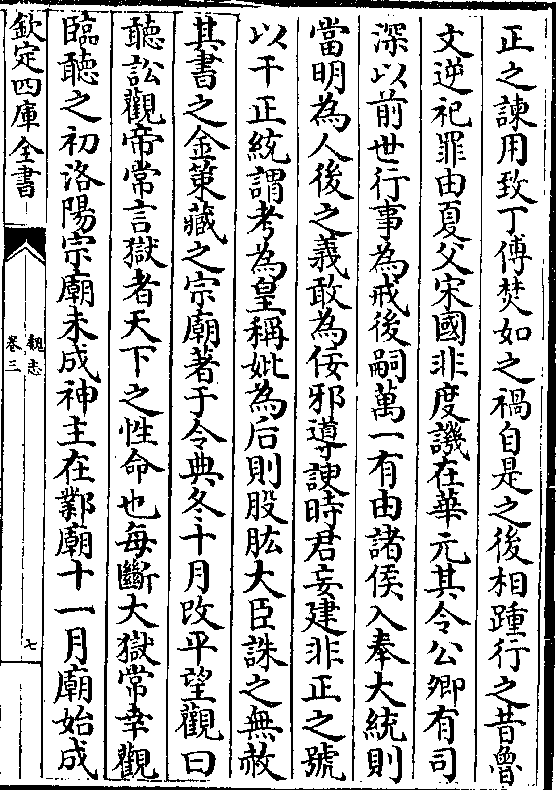 正之諫用致丁傅焚如之禍自是之後相踵行之昔魯
文逆祀罪由夏父宋國非度譏在華元其令公卿有司
深以前世行事為戒後嗣萬一有由諸侯入奉大統則
當明為人後之義敢為佞邪導諛時君妄建非正之號
以干正統謂考為皇稱妣為后則股肱大臣誅之無赦
其書之金策藏之宗廟著于令典冬十月改平望觀曰
聽訟觀帝常言獄者天下之性命也每斷大獄常幸觀
臨聽之初洛陽宗廟未成神主在鄴廟十一月廟始成
欽定四庫全書
魏志
卷三
七